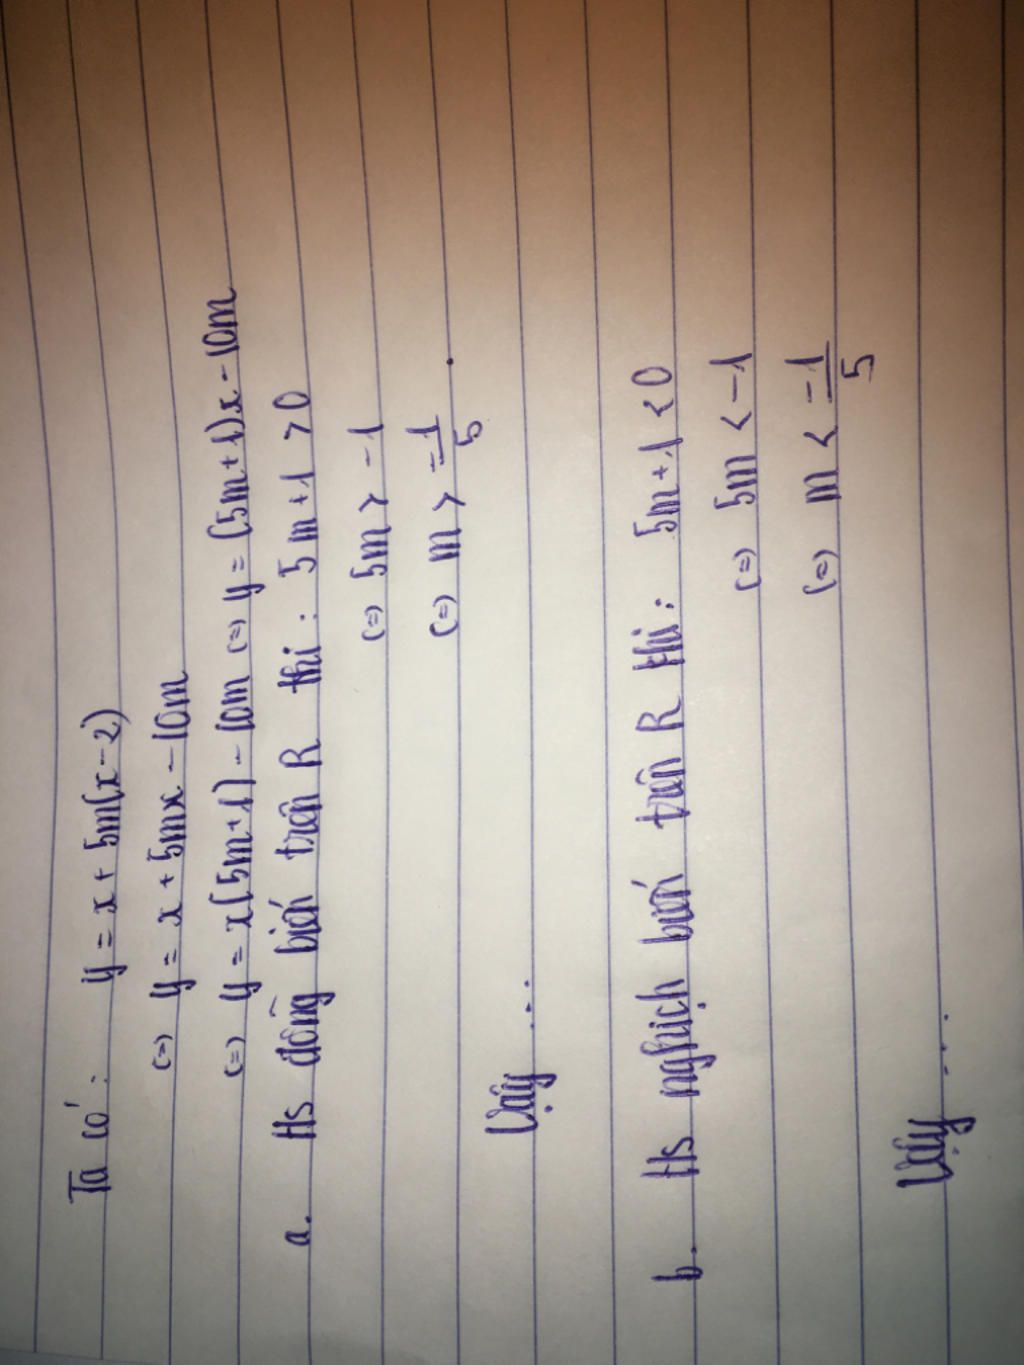 Ta có: y = x + 5m(x-2)
(=) y = x + 5mx - 10m
(=) y = x(5m+1) - 10m (=) y = (5m+1)x - 10m
a. Hs đồng biến trên R thì: 5m+1 > 0
(=) 5m > -1
(=) m > -1/5.
Vậy ...
b. Hs nghịch biến trên R thì: 5m+1 < 0
(=) 5m < -1
(=) m < -1/5
Vậy ....